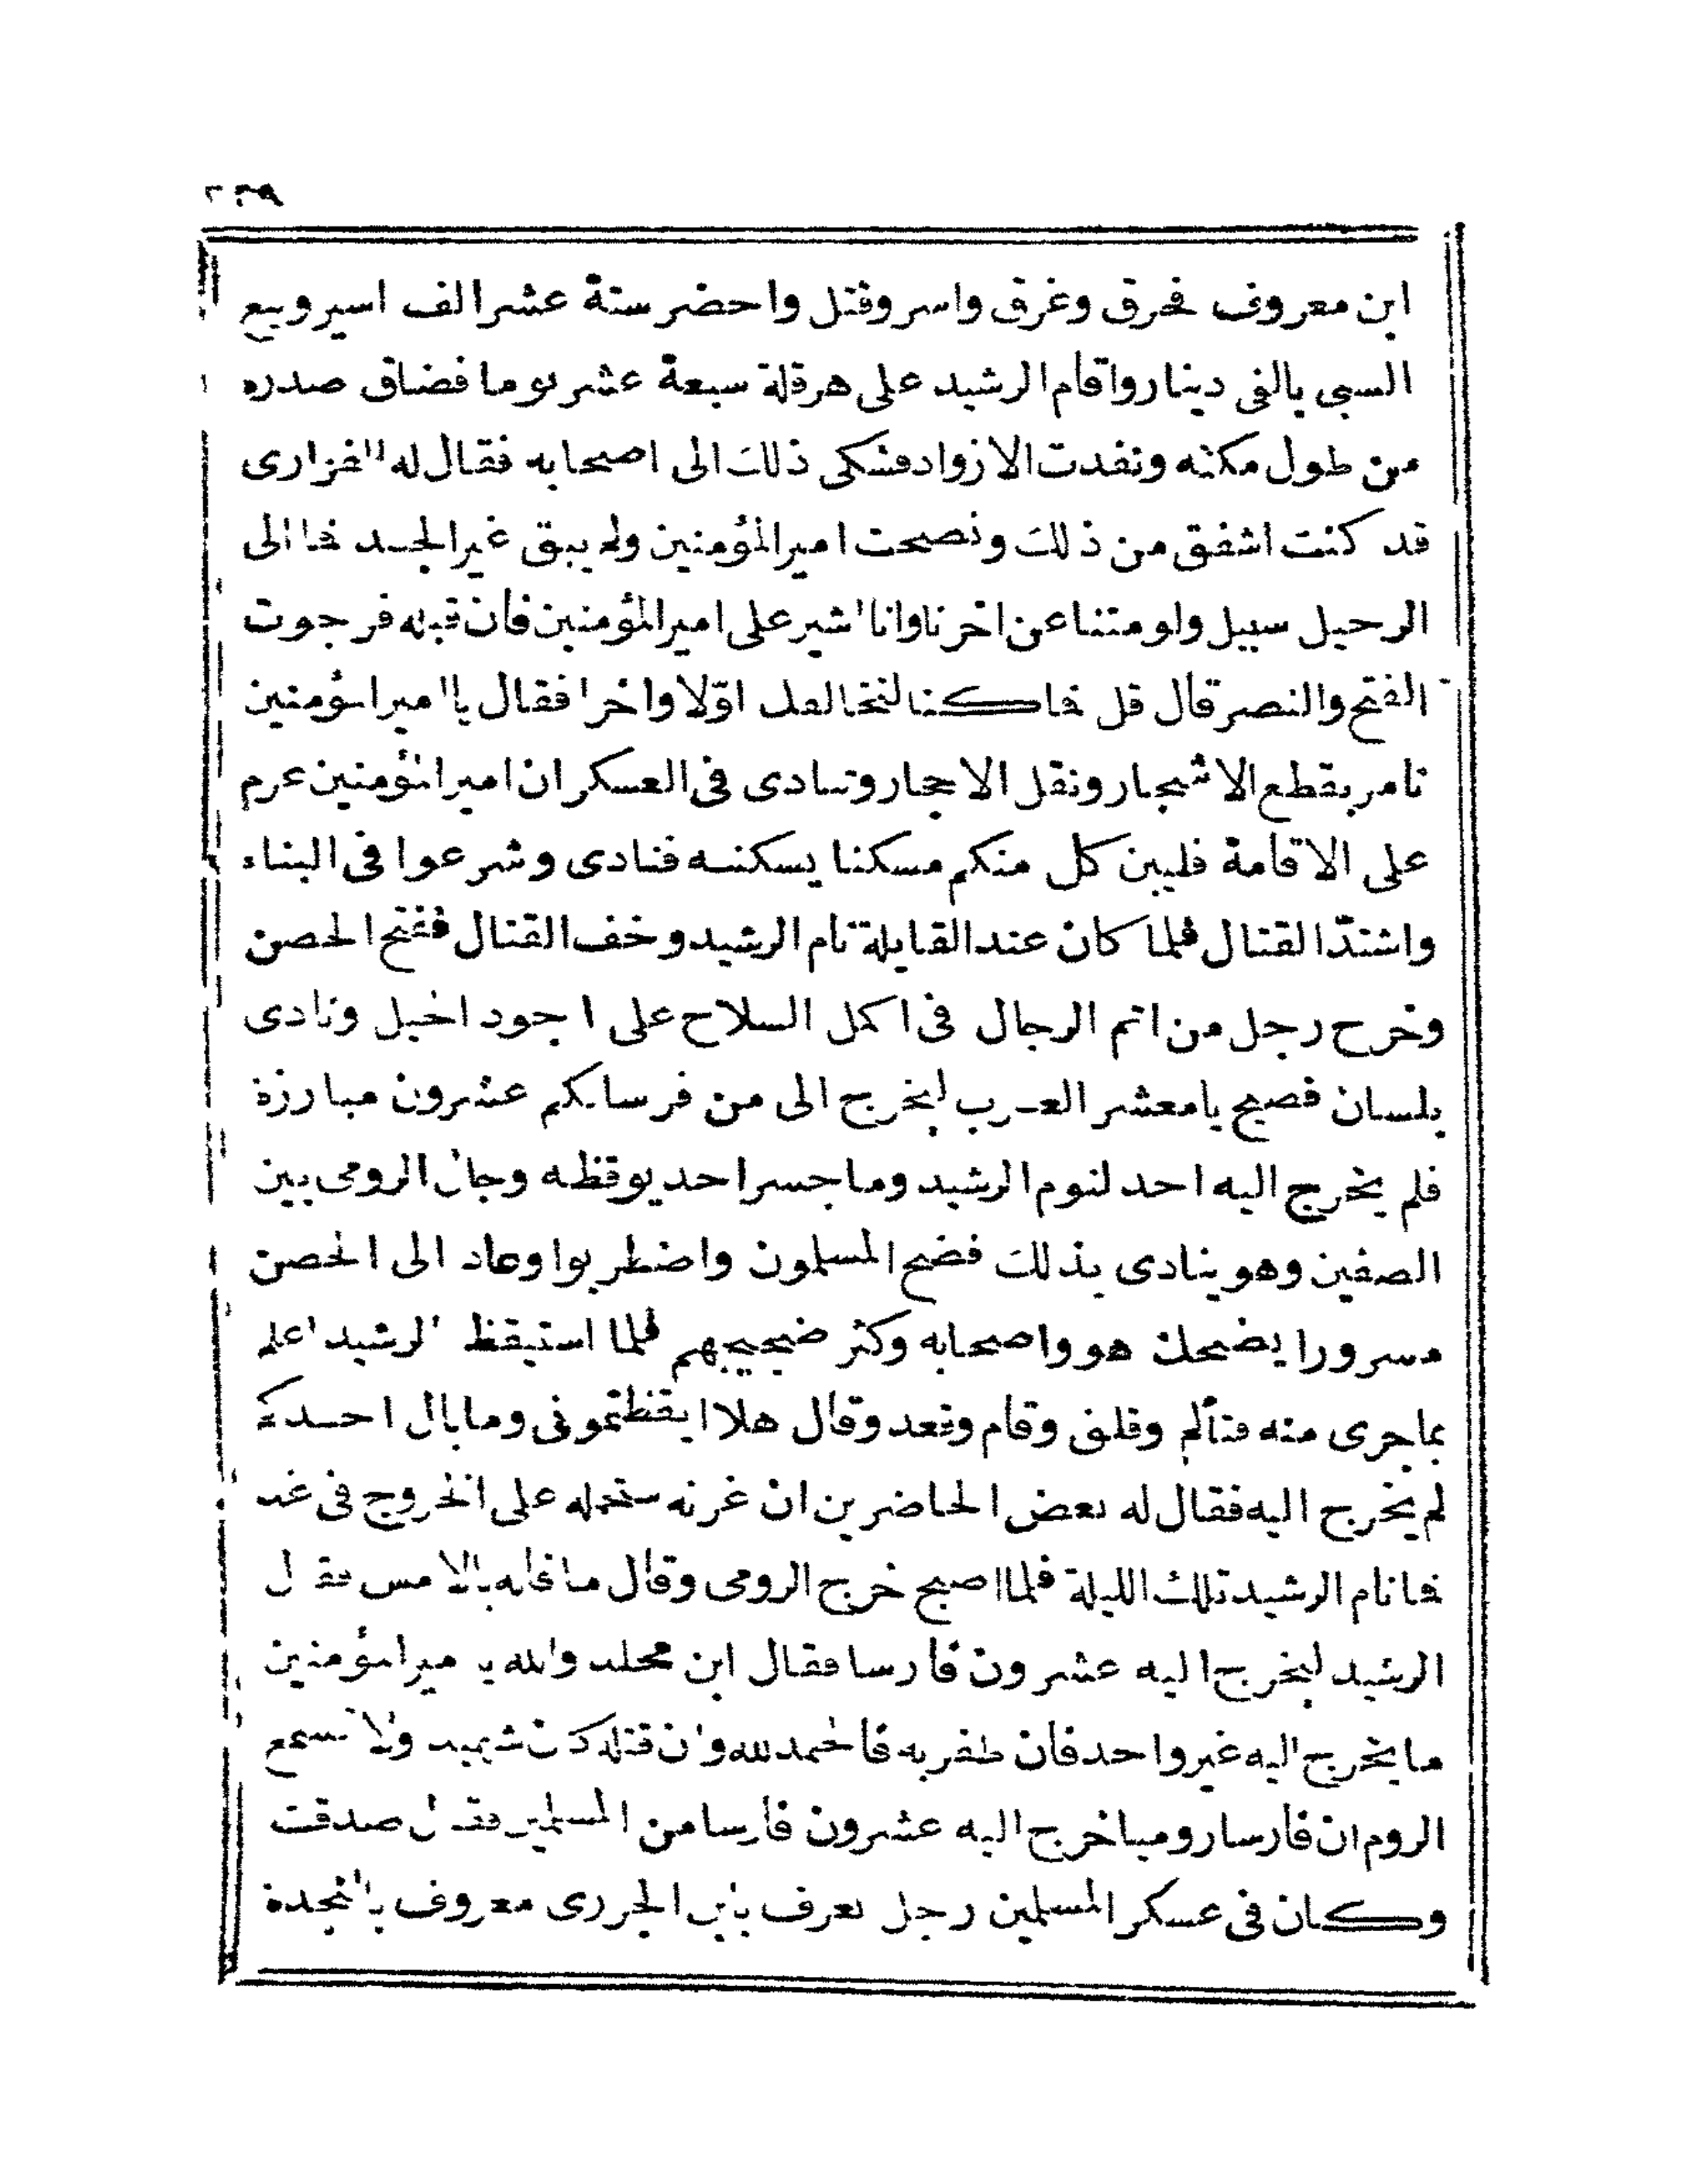 ابن معروف فحرق وغرق واسر وقتل واحضر ستة عشر الف اسير وبيع
السبى بالفى دينار واقام الرشيد على هرقلة سبعة عشر يوما فضاق صدره
من طول مكثه ونفدت الازواد فشكى ذلك الى اصحابه فقال له الفزارى
قد كنت اشفق من ذلك ونصحت امير المؤمنين ولم يبق غير الجد فما الى
الرحيل سبيل ولو متنا عن اخرنا وانا اشير على امير المؤمنين فان قبله فرجوت
الفتح والنصر قال قل فما كنا لنخالفك اوّلا واخرا فقال يا امير المؤمنين
تامر بقطع الاشجار ونقل الاحجار وتنادى فى العسكر ان امير المؤمنين عزم
على الاقامة فليبن كل منكم مسكنا يسكنه فنادى وشرعوا فى البناء
واشتدّ القتال فلما كان عند القايلة نام الرشيد وخف القتال ففتح الحصن
وخرج رجل من اتم الرجال فى اكمل السلاح على اجود الخيل ونادى
بلسان فصيح يا معشر العرب ليخرج الى من فرسانكم عشرون مبارزة
فلم يخرج اليه احد لنوم الرشيد وما جسر احد يوقظه وجال الرومى بين
الصفين وهو ينادى بذلك فضج المسلمون واضطربوا وعاد الى الحصن
مسرورا يضحك هو واصحابه وكثر ضجيجهم فلما استيقظ الرشيد اعلم
بما جرى منه فتألم وقلق وقام وقعد وقال هلا ايقظتمونى وما بال احدكم
لم يخرج اليه فقال له بعض الحاضرين ان غرته ستحمله على الخروج فى غد
فما نام الرشيد تلك الليلة فلما اصبح خرج الرومى وقال ما قاله بالامس فقال
الرشيد ليخرج اليه عشرون فارسا فقال ابن مخلد والله يا امير المؤمنين
ما يخرج اليه غير واحد فان ظفر به فالحمد لله وان قتله كان شهيد ولا تسمع
الروم ان فارسا روميا خرج اليه عشرون فارسا من المسلمين فقال صدقت
وكان فى عسكر المسلمين رجل يعرف بابن الجزرى معروف بالنجدة